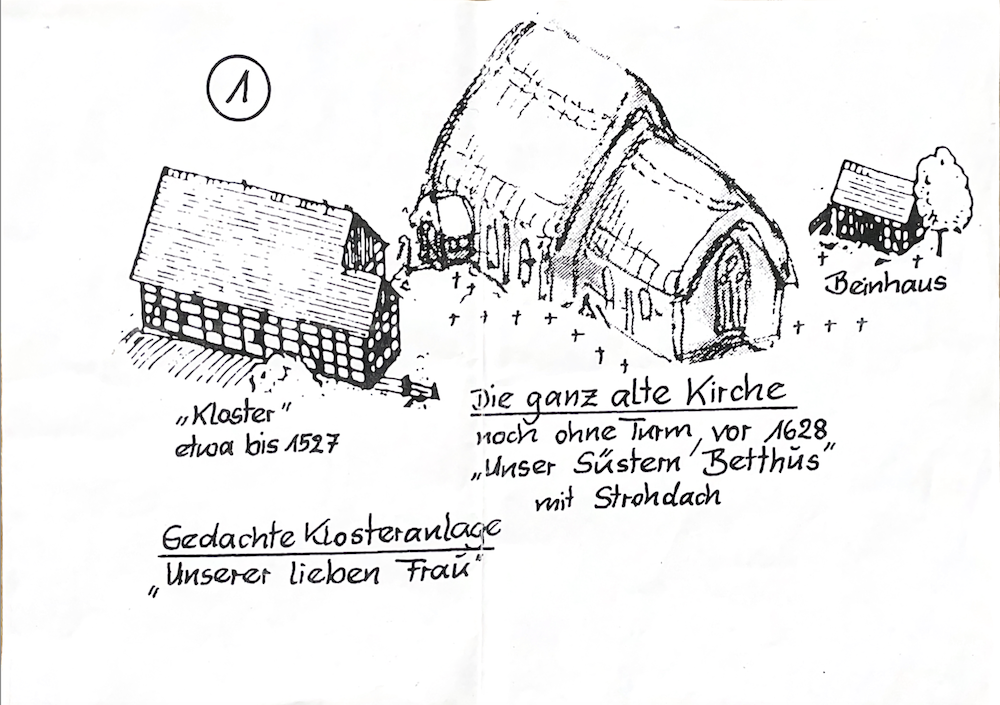 1
Beinhaus
„Kloster"
etwa bis 1527
Die ganz alte Kirche
noch ohne Turm, vor 1628
„Unser Süstern Betthus"
mit Strohdach
Gedachte Klosteranlage
„Unserer lieben Frau"